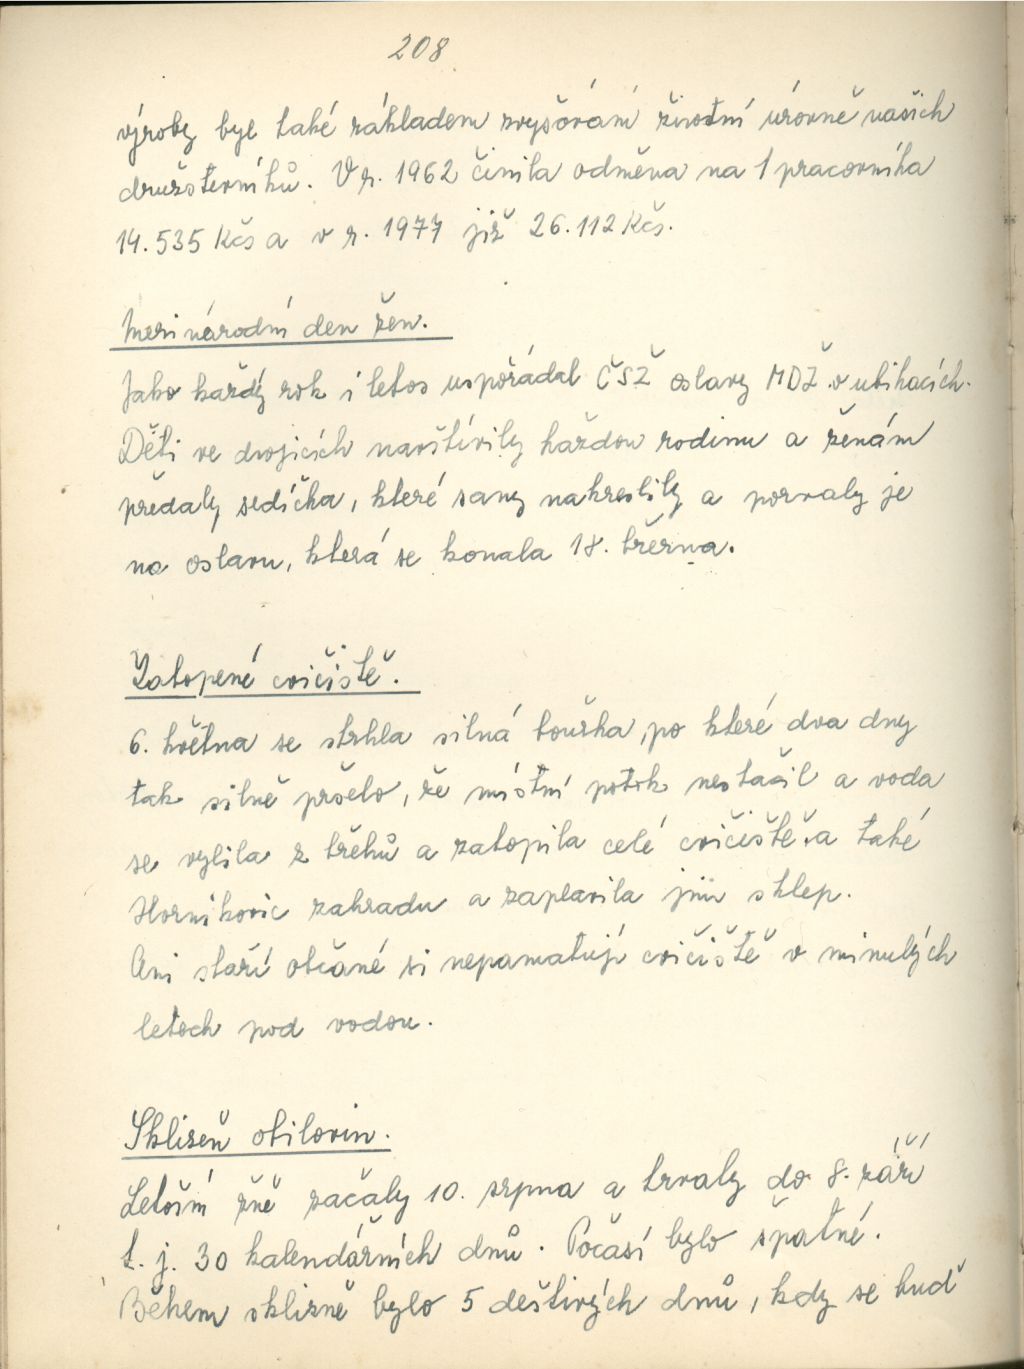 208
výroby byl také základem zvyšování životní úrovně našich
družsterníků. V r. 1962 činila odměna na 1 pracovníka
14.535 Kčs a v r. 1977 již 26.112 Kčs.
Mezinárodní den žen.
Jako každý rok i letos uspořádal ČSŽ oslavy MDŽ v ubikacích.
Děti ve dvojicích navštívily každou rodinu a ženám
předaly sedíčka, které samy nakreslily a pozvaly je
na oslavu, která se konala 18. března.
Zatopené cvičiště.
6. května se strhla silná bouřka, po které dva dny
tak silně pršelo, že místní potok nestačil a voda
se vylila z břehů a zatopila celé cvičiště a také
Horníkovic zahradu a zaplavila jim sklep.
Ani staří občané si nepamatují cvičiště v minulých
letech pod vodou.
Sklizeň obilovin.
Letošní žně začaly 10. srpna a trvaly do 8. září
t. j. 30 kalendářních dnů. Počasí bylo špatné.
Během sklizně bylo 5 deštivých dnů, kdy se buď